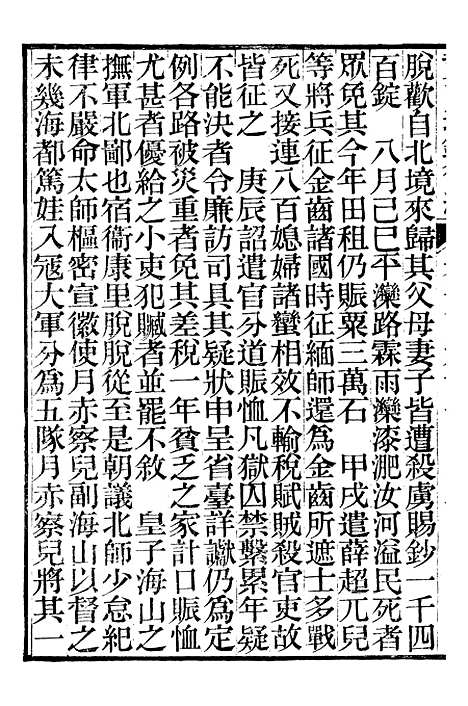 脫歡自北境來歸其父母妻子皆遭殺虜賜鈔一千四
百錠　八月己巳平灤路霖雨灤漆淝汝河溢民死者
眾免其今年田租仍賑粟三萬石　甲戌遣薛超兀兒
等將兵征金齒諸國時征緬師還爲金齒所遮士多戰
死又接連八百媳婦諸蠻相效不輸稅賦賊殺官吏故
皆征之　庚辰詔遣官分道賑恤凡獄囚禁繫累年疑
不能決者令廉訪司具其疑狀申呈省臺詳讞仍爲定
例各路被災重者免其差稅一年貧乏之家計口賑恤
尤甚者優給之小吏犯贓者並罷不敘　皇子海山之
撫軍北鄙也宿衛康里脫脫從至是朝議北師少怠紀
律不嚴命太師樞密宣徽使月赤察兒副海山以督之
未幾海都篤娃入寇大軍分爲五隊月赤察兒將其一